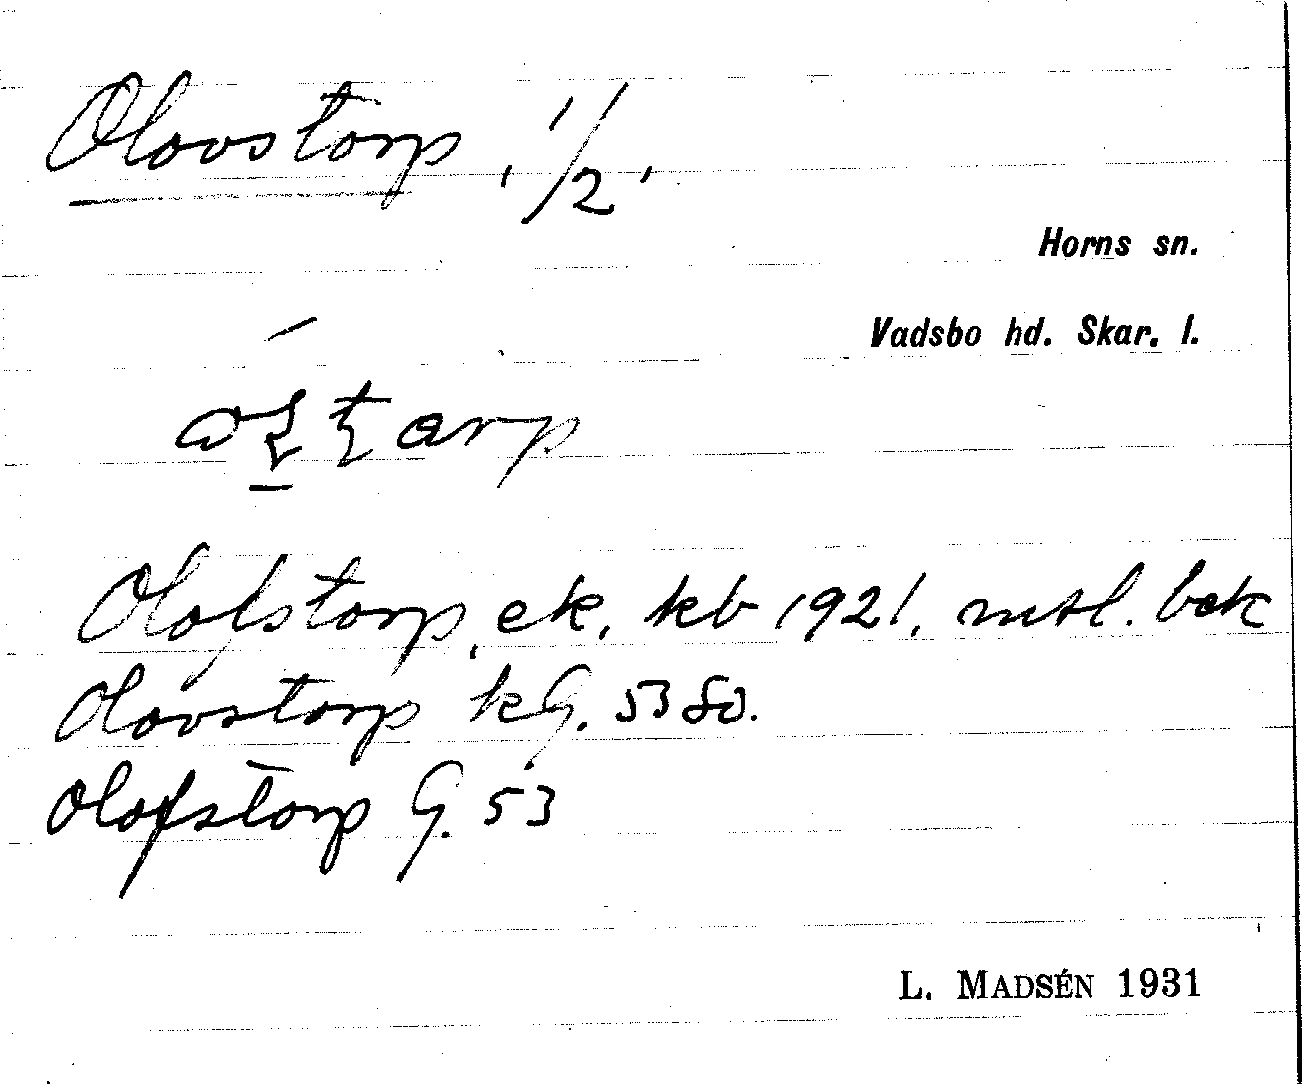 Olovstorp, 1/2,
Horns sn.
Vadsbo hd. Skar. l.
Olofstorp, ek, kb 1921, mtl. bok
Olovstorp kG. 53 SO.
Olofstorp G. 53
L. MADSÉN 1931